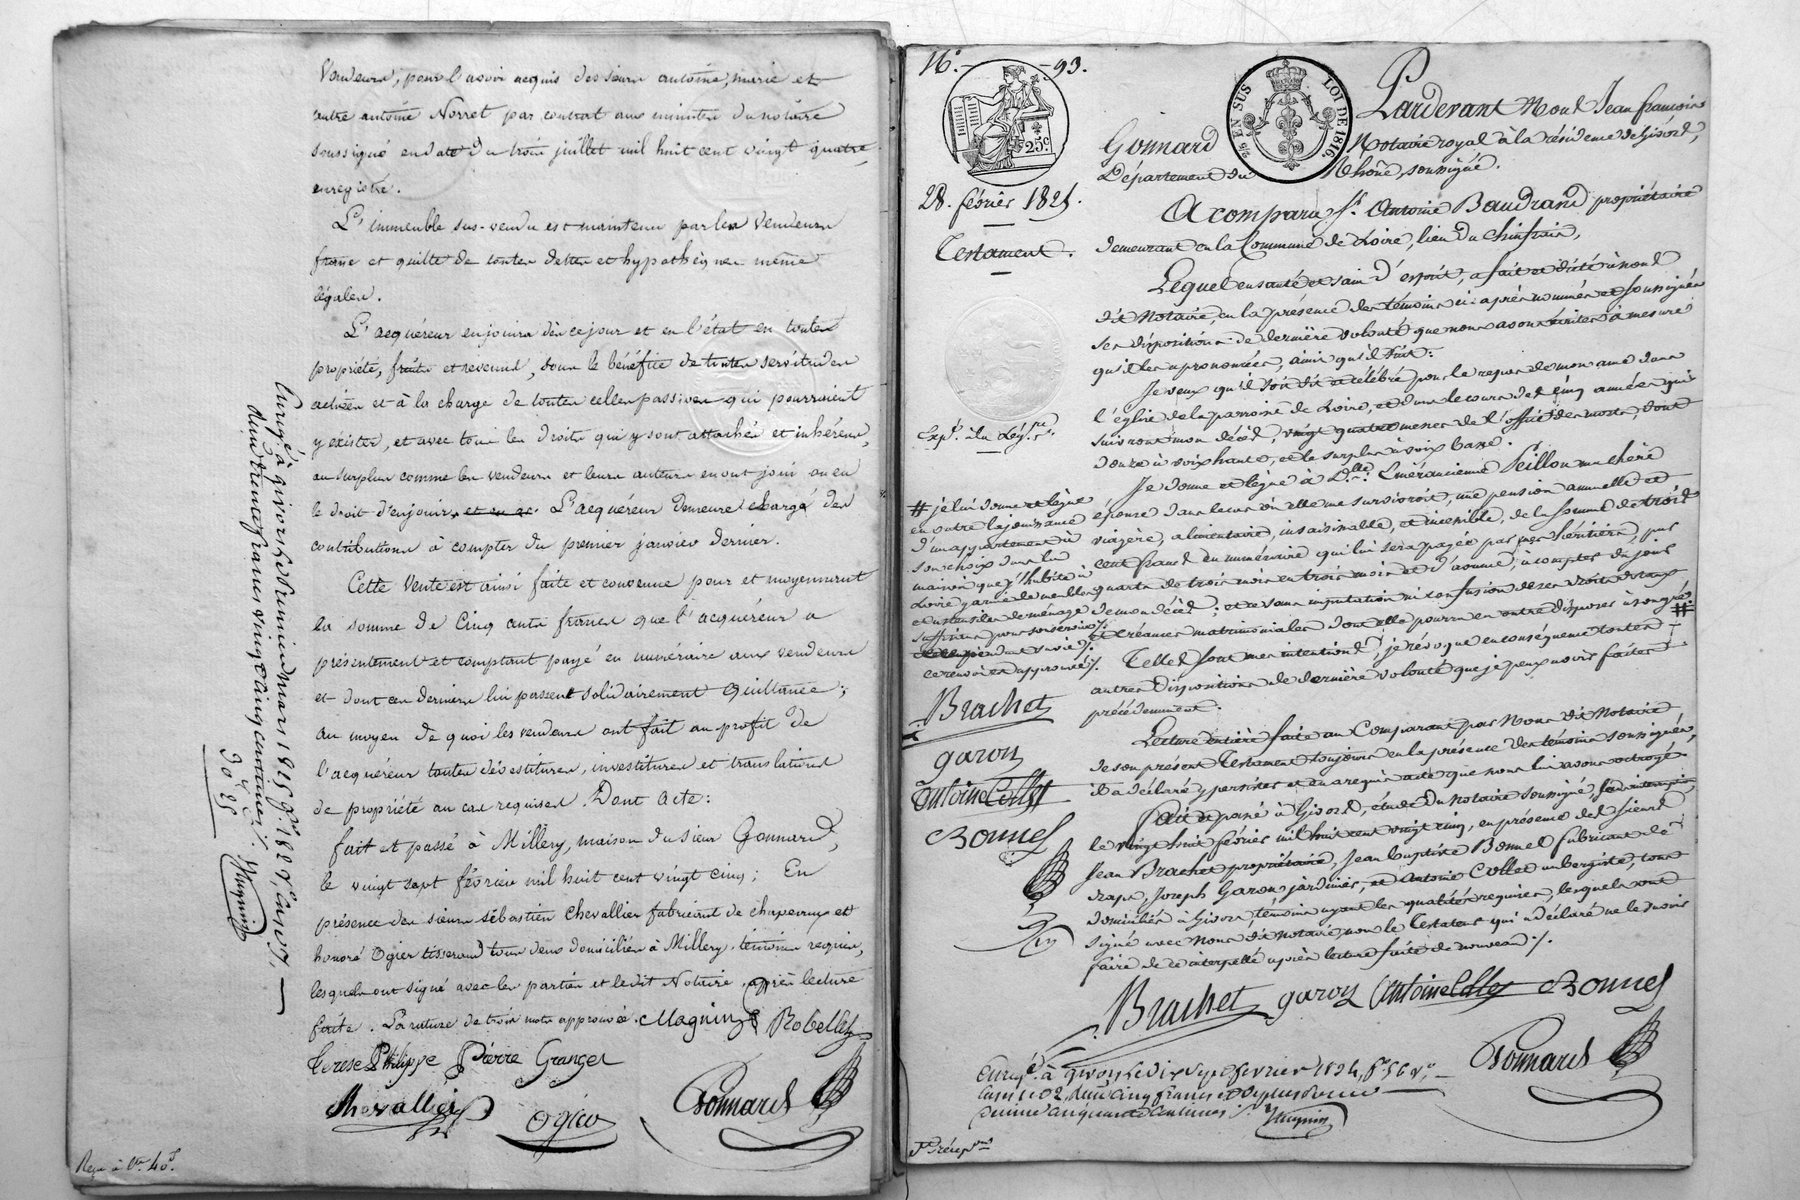 Vendeurs, pour l'avoir acquis des sieurs antoine, marie et
autre antoine Norret par contrat aux minutes du notaire
soussigné en date du trois juillet mil huit cent vingt quatre,
enregistré.
L'immeuble sus-vendu est maintenu par les vendeurs
franc et quitte de toutes dettes et hypothèques même
légales.
L'acquéreur en jouira dès ce jour et en l'état en toutes
propriété, fruits et revenus, sous le bénéfice de toutes servitudes
actives et à la charge de toutes celles passives qui pourraient
y exister, et avec tous les droits qui y sont attachés et inhérens,
au surplus comme les vendeurs et leurs auteurs en ont joui ou eu
le droit d'en jouir. L'acquéreur demeure chargé des
contributions à compter du premier janvier dernier.
Cette vente est ainsi faite et convenue pour et moyennant
la somme de Cinq cents francs que l'acquéreur a
présentement et comptant payé en numéraire aux vendeurs
et dont ces derniers lui passent solidairement quittance;
au moyen de quoi les vendeurs ont fait au profit de
l'acquéreur toutes dévestitures, investitures et translations
de propriété au cas requises. Dont acte:
fait et passé à Millery, maison du sieur Gonnard,
le vingt sept février mil huit cent vingt cinq; En
présence des sieurs sébastien Chevallier fabricant de chapeaux et
honoré Ogier tisserand tous deux domiciliés à Millery, témoins requis,
lesquels ont signé avec les parties et ledit Notaire, après lecture
faite. La rature de trois mots approuvée. Magnin Robelles
Terese Philippe Pierre Granges
Chevallier Ogier Gonnard
Enregé à givors le premier mars 1825
deux trente francs vingt cinq centimes
30f 25
Reçu à Vte 40f
16. 93.
25c
EN SUS LOI DE 1816
28. février 1825.
Testament.
Expn. à la Leg.re
Pardevant Nous Jean françois
Gonnard Notaire royal à la résidence de Givors,
Département du Rhône, soussigné.
A comparu Sr. Antoine Baudrand propriétaire
demeurant en la Commune de Loire, lieu du Chinfrais,
Lequel en santé et sain d'esprit, a fait et dicté à nous
dit Notaire, en la présence des témoins ci-après nommés et soussignés
ses dispositions de dernière volonté que nous avons écrites à mesure
qu'il les a prononcées, ainsi qu'il suit:
Je veux qu'il soit dit et célébré pour le repos de mon ame dans
l'église de la paroisse de Loire, et dans le cours des cinq années qui
suivront mon décès, vingt quatre messes de l'office des morts, dont
douze à voix haute, et le surplus à voix basse.
Je donne et lègue à Dlle. Emérancienne Peillon ma chère
épouse dans le cas où elle me survivroit, une pension annuelle et
viagère, alimentaire, insaisissable, et incessible, de la somme de trois
cent francs en numéraire qui lui sera payée par mes héritiers, par
quarts de trois mois en trois mois et d'avance, à compter du jour
de mon décès; et ce sans imputation ni confusion de ses droits dotaux
et créances matrimoniales dont elle pourra en outre disposer à son gré. #
Telles sont mes intentions, je révoque en conséquence toutes
autres dispositions de dernière volonté que je peux avoir faites
précédemment.
Lecture entière faite au Comparant par Nous dit Notaire
de son présent Testament toujours en la présence des témoins soussignés,
il a déclaré y persister et en a requis acte que nous lui avons octroyé
Fait et passé à Givors, étude du Notaire soussigné,
le vingt huit février mil huit cent vingt cinq, en présence des sieurs
Jean Brachet propriétaire, Jean baptiste Bonnel fabricant de
draps, Joseph Garon jardinier, et Antoine Collet aubergiste, tous
domiciliés à Givors, témoins ayant les qualités requises, lesquels ont
signé avec Nous dit notaire, non le Testateur qui a déclaré ne le savoir
faire de ce interpellé après lecture faite de nouveau ./.
# je lui donne et lègue
en outre la jouissance
d'un appartement à
son choix dans la
maison que j'habite à
Loire garnie de meubles
et ustensiles de ménage
suffisans pour son service
ce renvoi est approuvé ./.
Brachet
garon
Antoine Collet
Bonnel
Brachet garon Antoine Collet Bonnel
Gonnard
Enregé. à givors, le dix sept février
deux cinq francs
cinquante centimes